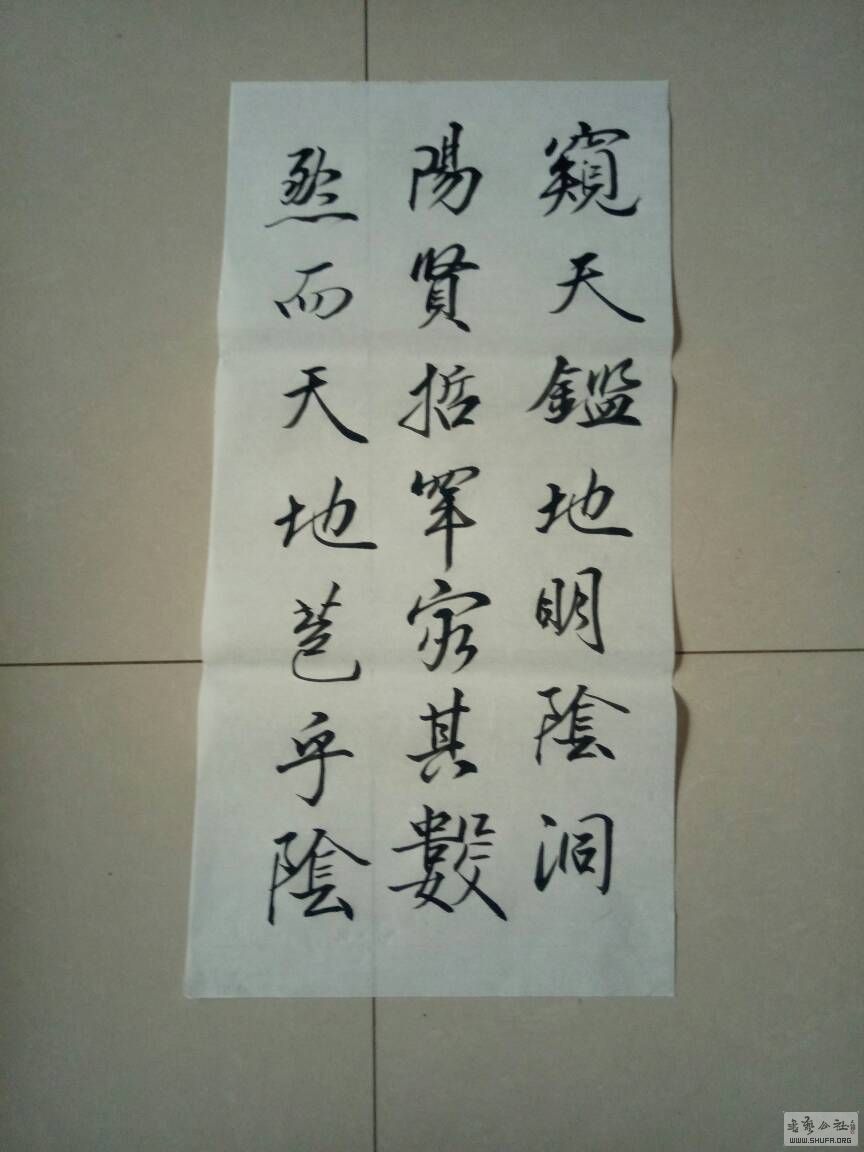 窺天鑑地明陰洞
陽賢哲罕窮其數
然而天地苞乎陰
书艺公社
WWW.SHUFA.ORG